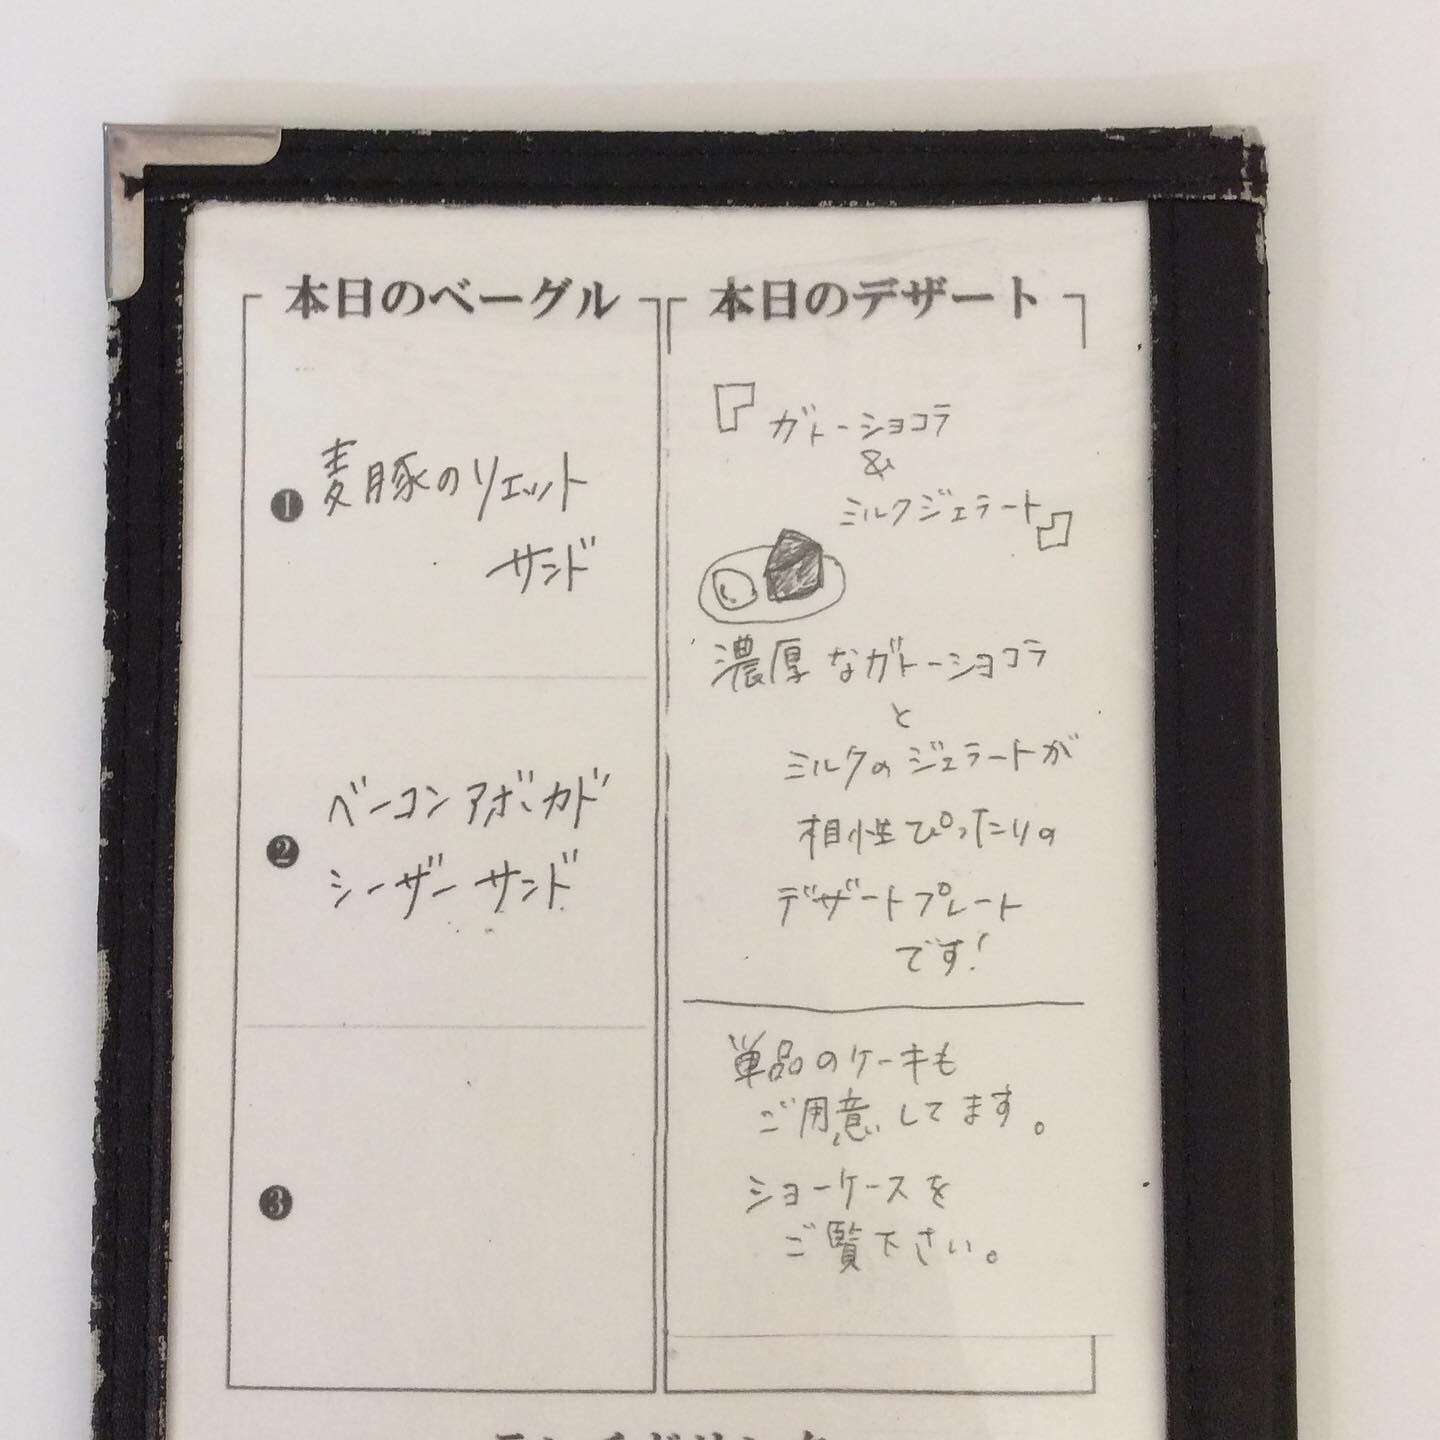 本日のベーグル
❶ 麦豚のリエット
サンド
❷ ベーコンアボカド
シーザーサンド
❸
本日のデザート
『ガトーショコラ
&
ミルクジェラート』
濃厚なガトーショコラ
と
ミルクのジェラートが
相性ぴったりの
デザートプレート
です!
単品のケーキも
ご用意してます。
ショーケースを
ご覧下さい。